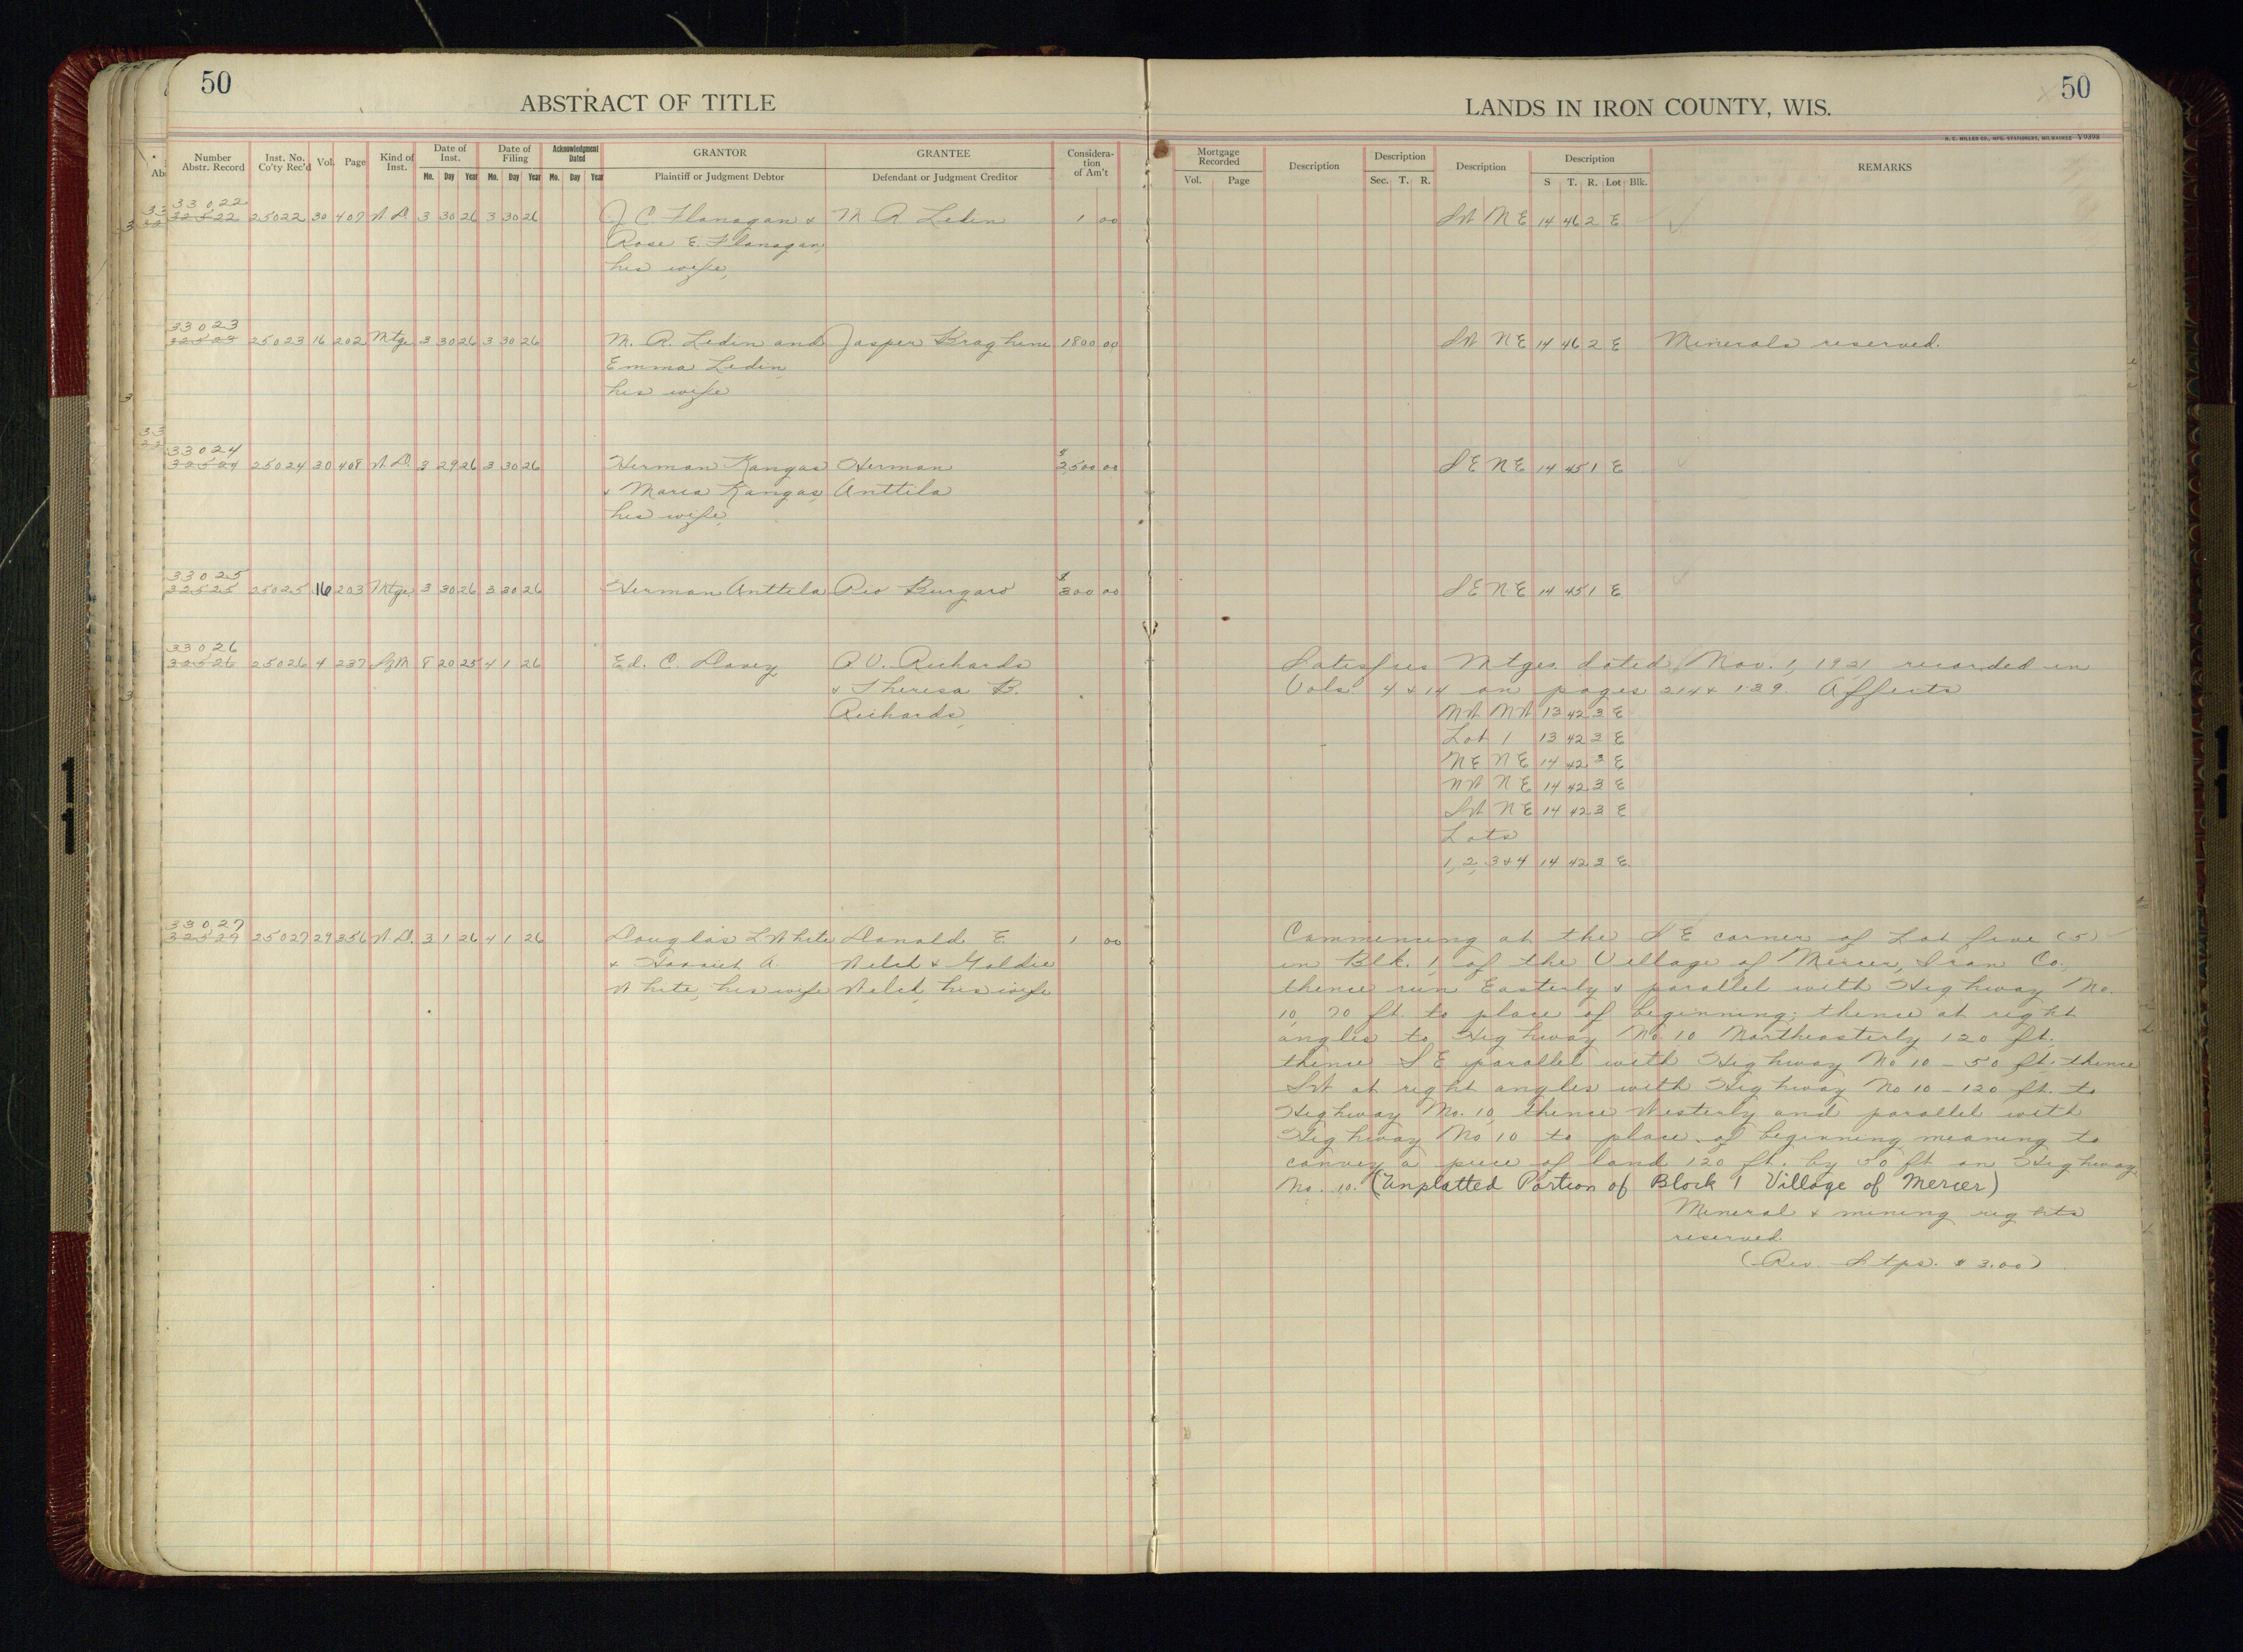 50
ABSTRACT OF TITLE
LANDS IN IRON COUNTY, WIS.
50
H. C. MILLER CO., MFG. STATIONERS, MILWAUKEE V9398
Number Abstr. Record | Inst. No. Co'ty Rec'd | Vol. | Page | Kind of Inst. | Date of Inst. Mo. Day Year | Date of Filing Mo. Day Year | Acknowledgment Dated Mo. Day Year | GRANTOR Plaintiff or Judgment Debtor | GRANTEE Defendant or Judgment Creditor | Considera-tion of Am't | Mortgage Recorded Vol. Page | Description | Description Sec. T. R. | Description | Description S T. R. Lot Blk. | REMARKS
33022
32522 25022 30 407 W.D. 3 30 26 3 30 26 J C Flanagan & M. A. Ledin 1 00 SW NE 14 46 2 E
Rose E. Flanagan,
his wife,
33023
32523 25023 16 202 Mtge 3 30 26 3 30 26 M. A. Ledin and Jasper Braghine 1800 00 SW NE 14 46 2 E Minerals reserved.
Emma Ledin,
his wife
33024
32524 25024 30 408 W.D. 3 29 26 3 30 26 Herman Kangas Herman $2500 00 SE NE 14 45 1 E
& Maria Kangas, Anttila
his wife,
33025
32525 25025 16 203 Mtge 3 30 26 3 30 26 Herman Anttila Pio Burgaro $300 00 SE NE 14 45 1 E
33026
32526 25026 4 237 8 20 25 4 1 26 Ed. C. Davey R. V. Richards Satisfies Mtges. dated Nov. 1, 1921 recorded in
& Theresa B. Vols 4 & 14 on pages 214 & 139. Affects
Richards, NW NW 13 42 3 E
Lot 1 13 42 3 E
NE NE 14 42 3 E
NW NE 14 42 3 E
SW NE 14 42 3 E
Lots
1, 2, 3 & 4 14 42 3 E.
33027
32527 25027 29 356 W.D. 3 1 26 4 1 26 Douglas L White Donald E. 1 00 Commencing at the SE corner of Lot five (5)
& Harriet A. Welch & Goldie in Blk. 1, of the Village of Mercer, Iron Co.,
White, his wife Welch, his wife thence run Easterly & parallel with Highway No.
10, 70 ft. to place of beginning; thence at right
angles to Highway No. 10 Northeasterly 120 ft.
thence SE parallel with Highway No 10 - 50 ft. thence
SW at right angles with Highway No 10 - 120 ft. to
Highway No. 10, thence Westerly and parallel with
Highway No 10 to place of beginning meaning to
convey a piece of land 120 ft. by 50 ft on Highway
No. 10. (Unplatted Portion of Block 1 Village of Mercer)
Mineral & mining rights
reserved.
(Rev. Stps. $3.00)